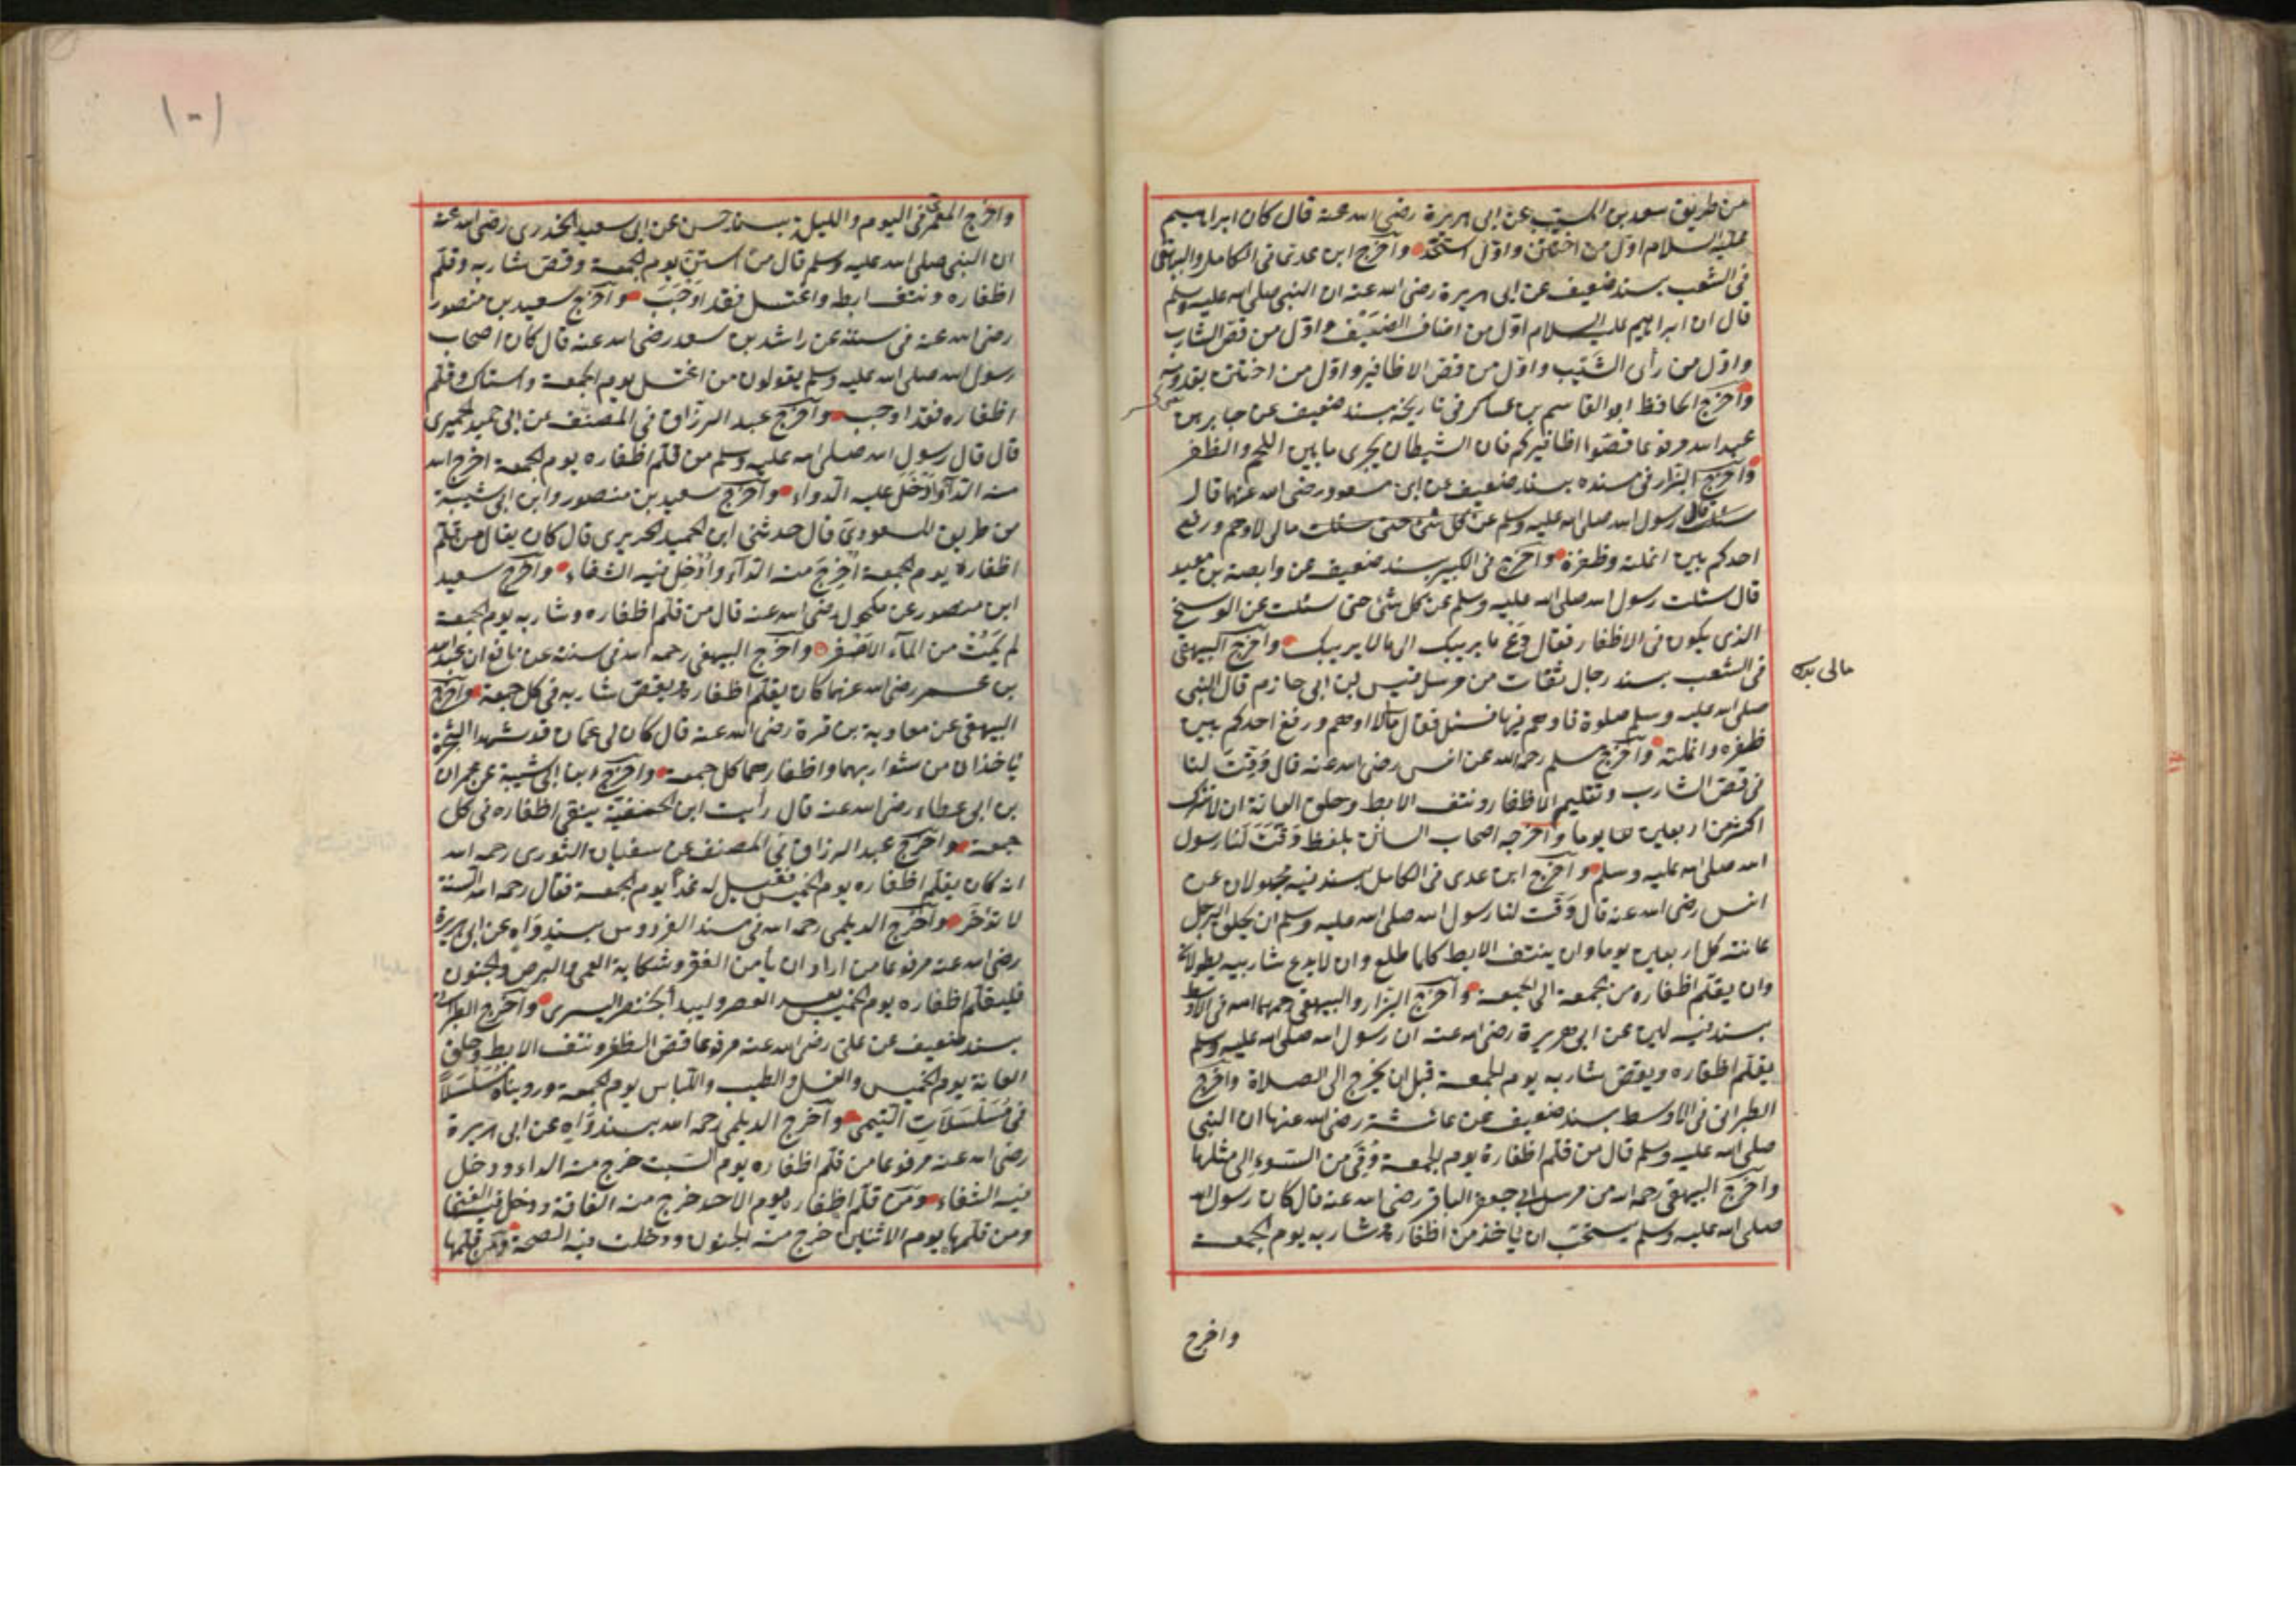 من طريق سعد بن المسيب عن ابى هريرة رضى الله عنه قال كان ابراهيم
عليه السلام اول من اختتن واول استحد وآخرج ابن عدى فى الكامل والبيهقى
فى الشعب بسند ضعيف عن ابى هريرة رضى الله عنه ان النبى صلى الله عليه وسلم
قال ان ابراهيم عليه السلام اوّل من اضاف الضَيْف واوّل من قصّ الشارب
واوّل من رأى الشَيْب واوّل من قص الاظافير واوّل من اختتن بقدومه
وآخرج الحافظ ابو القاسم بن عساكر فى تاريخه بسند ضعيف عن جابر بن
عبد الله مرفوعا قصّوا اظافيركم فان الشيطان يجرى ما بين اللحم والظفر
وآخرج البزار فى مسنده بسند ضعيف عن ابن مسعود رضى الله عنهما قال
سئلت رسول الله صلى الله عليه وسلم عن كل شئ حتى سئلت مالى لا اوهم ورفغ
احدكم بين انملته وظفره وآخرج فى الكبير بسند ضعيف عن وابصة بن معبد
قال سئلت رسول الله صلى الله عليه وسلم عن كل شئ حتى سئلت عن الوسخ
الذى يكون فى الاظفار فقال دَعْ ما يريبك الى مالا يريبك وآخرج البيهقى
فى الشعب بسند رجال ثقات من مرسل قيس بن ابى حازم قال النبى
مالى
صلى الله عليه وسلم صلوة فاوهم فيها فسئل فقال مالى لا اوهم ورفغ احدكم بين
ظفره وانملته وآخرج مسلم رحمه الله عن انس رضى الله عنه قال وُقِّتَ لنا
فى قص الشارب وتقليم الاظفار ونتف الابط وحلق العانة ان لا نترك
اكثر من اربعين يوما وآخرجه اصحاب السنن بلفظ وَقَّتَ لَنا رسول
الله صلى الله عليه وسلم وآخرج ابن عدى فى الكامل بسند فيه مجهولان عن
انس رضى الله عنه قال وَقّت لنا رسول الله صلى الله عليه وسلم ان يحلق الرجل
عانته كل اربعين يوما وان ينتف الابط كلما طلع وان لا يدع شاربيه يطولان
وان يقلّم اظفاره من الجمعة الى الجمعة وآخرج البزار والبيهقى رحمهما الله فى الاوسط
بسند فيه لين عن ابى هريرة رضى الله عنه ان رسول الله صلى الله عليه وسلم
يقلّم اظفاره ويقص شاربه يوم الجمعة قبل ان يخرج الى الصلاة وآخرج
الطبرانى فى الاوسط بسند ضعيف عن عائشة رضى الله عنها ان النبى
صلى الله عليه وسلم قال من قلّم اظفاره يوم الجمعة وُقِىَ من السّوءِ الى مثلها
وآخرج البيهقى رحمه الله من مرسل ابى جعفر الباقر رضى الله عنه قال كان رسول الله
صلى الله عليه وسلم يستحبّ ان ياخذ من اظفاره وشاربه يوم الجمعة
واخرج
وآخرج المعمرى فى اليوم والليلة بسند حسن عن ابى سعيد الخدرى رضى الله عنه
ان النبى صلى الله عليه وسلم قال من استن يوم الجمعة وقص شاربه وقلّم
اظفاره ونتف ابطه واغتسل فقد اَوْجَبَ وآخرج سعيد بن منصور
رضى الله عنه فى سننه عن راشد بن سعد رضى الله عنه قال كان اصحاب
رسول الله صلى الله عليه وسلم يقولون من اغتسل يوم الجمعة واستاك وقلّم
اظفاره فقد اوجب وآخرج عبد الرزاق فى المصنّف عن ابى حميد الحميرى
قال قال رسول الله صلى الله عليه وسلم من قلّم اظفاره يوم الجمعة اخرج الله
منه الدآء واَدْخَل عليه الدواء وآخرج سعيد بن منصور وابن ابى شيبة
من طريق المسعودى قال حدثنى ابن الحميد الحريرى قال كان يقال من قلّم
اظفاره يوم الجمعة اُخْرِجَ منه الدآء واُدْخِل فيه الشفاء وآخرج سعيد
ابن منصور عن مكحول رضى الله عنه قال من قلّم اظفاره وشاربه يوم الجمعة
لم يَمُتْ من المآء الاَصْفَر وآخرج البيهقى رحمه الله فى سننه عن نافع ان عبد الله
بن عمر رضى الله عنهما كان يقلّم اظفاره ويقص شاربه فى كل جمعة وآخرج
البيهقى عن معاوية بن قرة رضى الله عنه قال كان لى عمان قد شهدا الشجرة
ياخذان من شواربهما واظفارهما كل جمعة وآخرج ابن ابى شيبة عن عمران
بن ابى عطاء رضى الله عنه قال رأيت ابن الحنفيّة ينقى اظفاره فى كل
جمعة وآخرج عبد الرزاق فى المصنف عن سفيان الثورى رحمه الله
انه كان يقلّم اظفاره يوم الخميس فقيل له غداً يوم الجمعة فقال رحمه الله السنة
لا تؤخر وآخرج الديلمى رحمه الله فى مسند الفردوس بسندٍ وَاهٍ عن ابى هريرة
رضى الله عنه مرفوعا من اراد ان يأمن الفقر وشكاية العمى والبرص والجنون
فليقلّم اظفاره يوم الخميس بعد العصر وليبدأ بخنصر اليسرى وآخرج الطبرانى
بسند ضعيف عن على رضى الله عنه مرفوعا قص الظفر ونتف الابط وحلق
العانة يوم الخميس والغسل والطيب واللّباس يوم الجمعة ورويناه مُسَلْسَلاً
فى مُسَلْسَلَاتِ التيمى وآخرج الديلمى رحمه الله بسند وَاهٍ عن ابى هريرة
رضى الله عنه مرفوعا من قلّم اظفاره يوم السّبت خرج منه الداء ودخل
فيه الشفاء ومَن قلّم اظفاره يوم الاحد خرج منه الفاقة ودخل فيه الغنا
ومن قلّمها يوم الاثنين خرج منه الجنون ودخلت فيه الصحة ومَن قلّمها